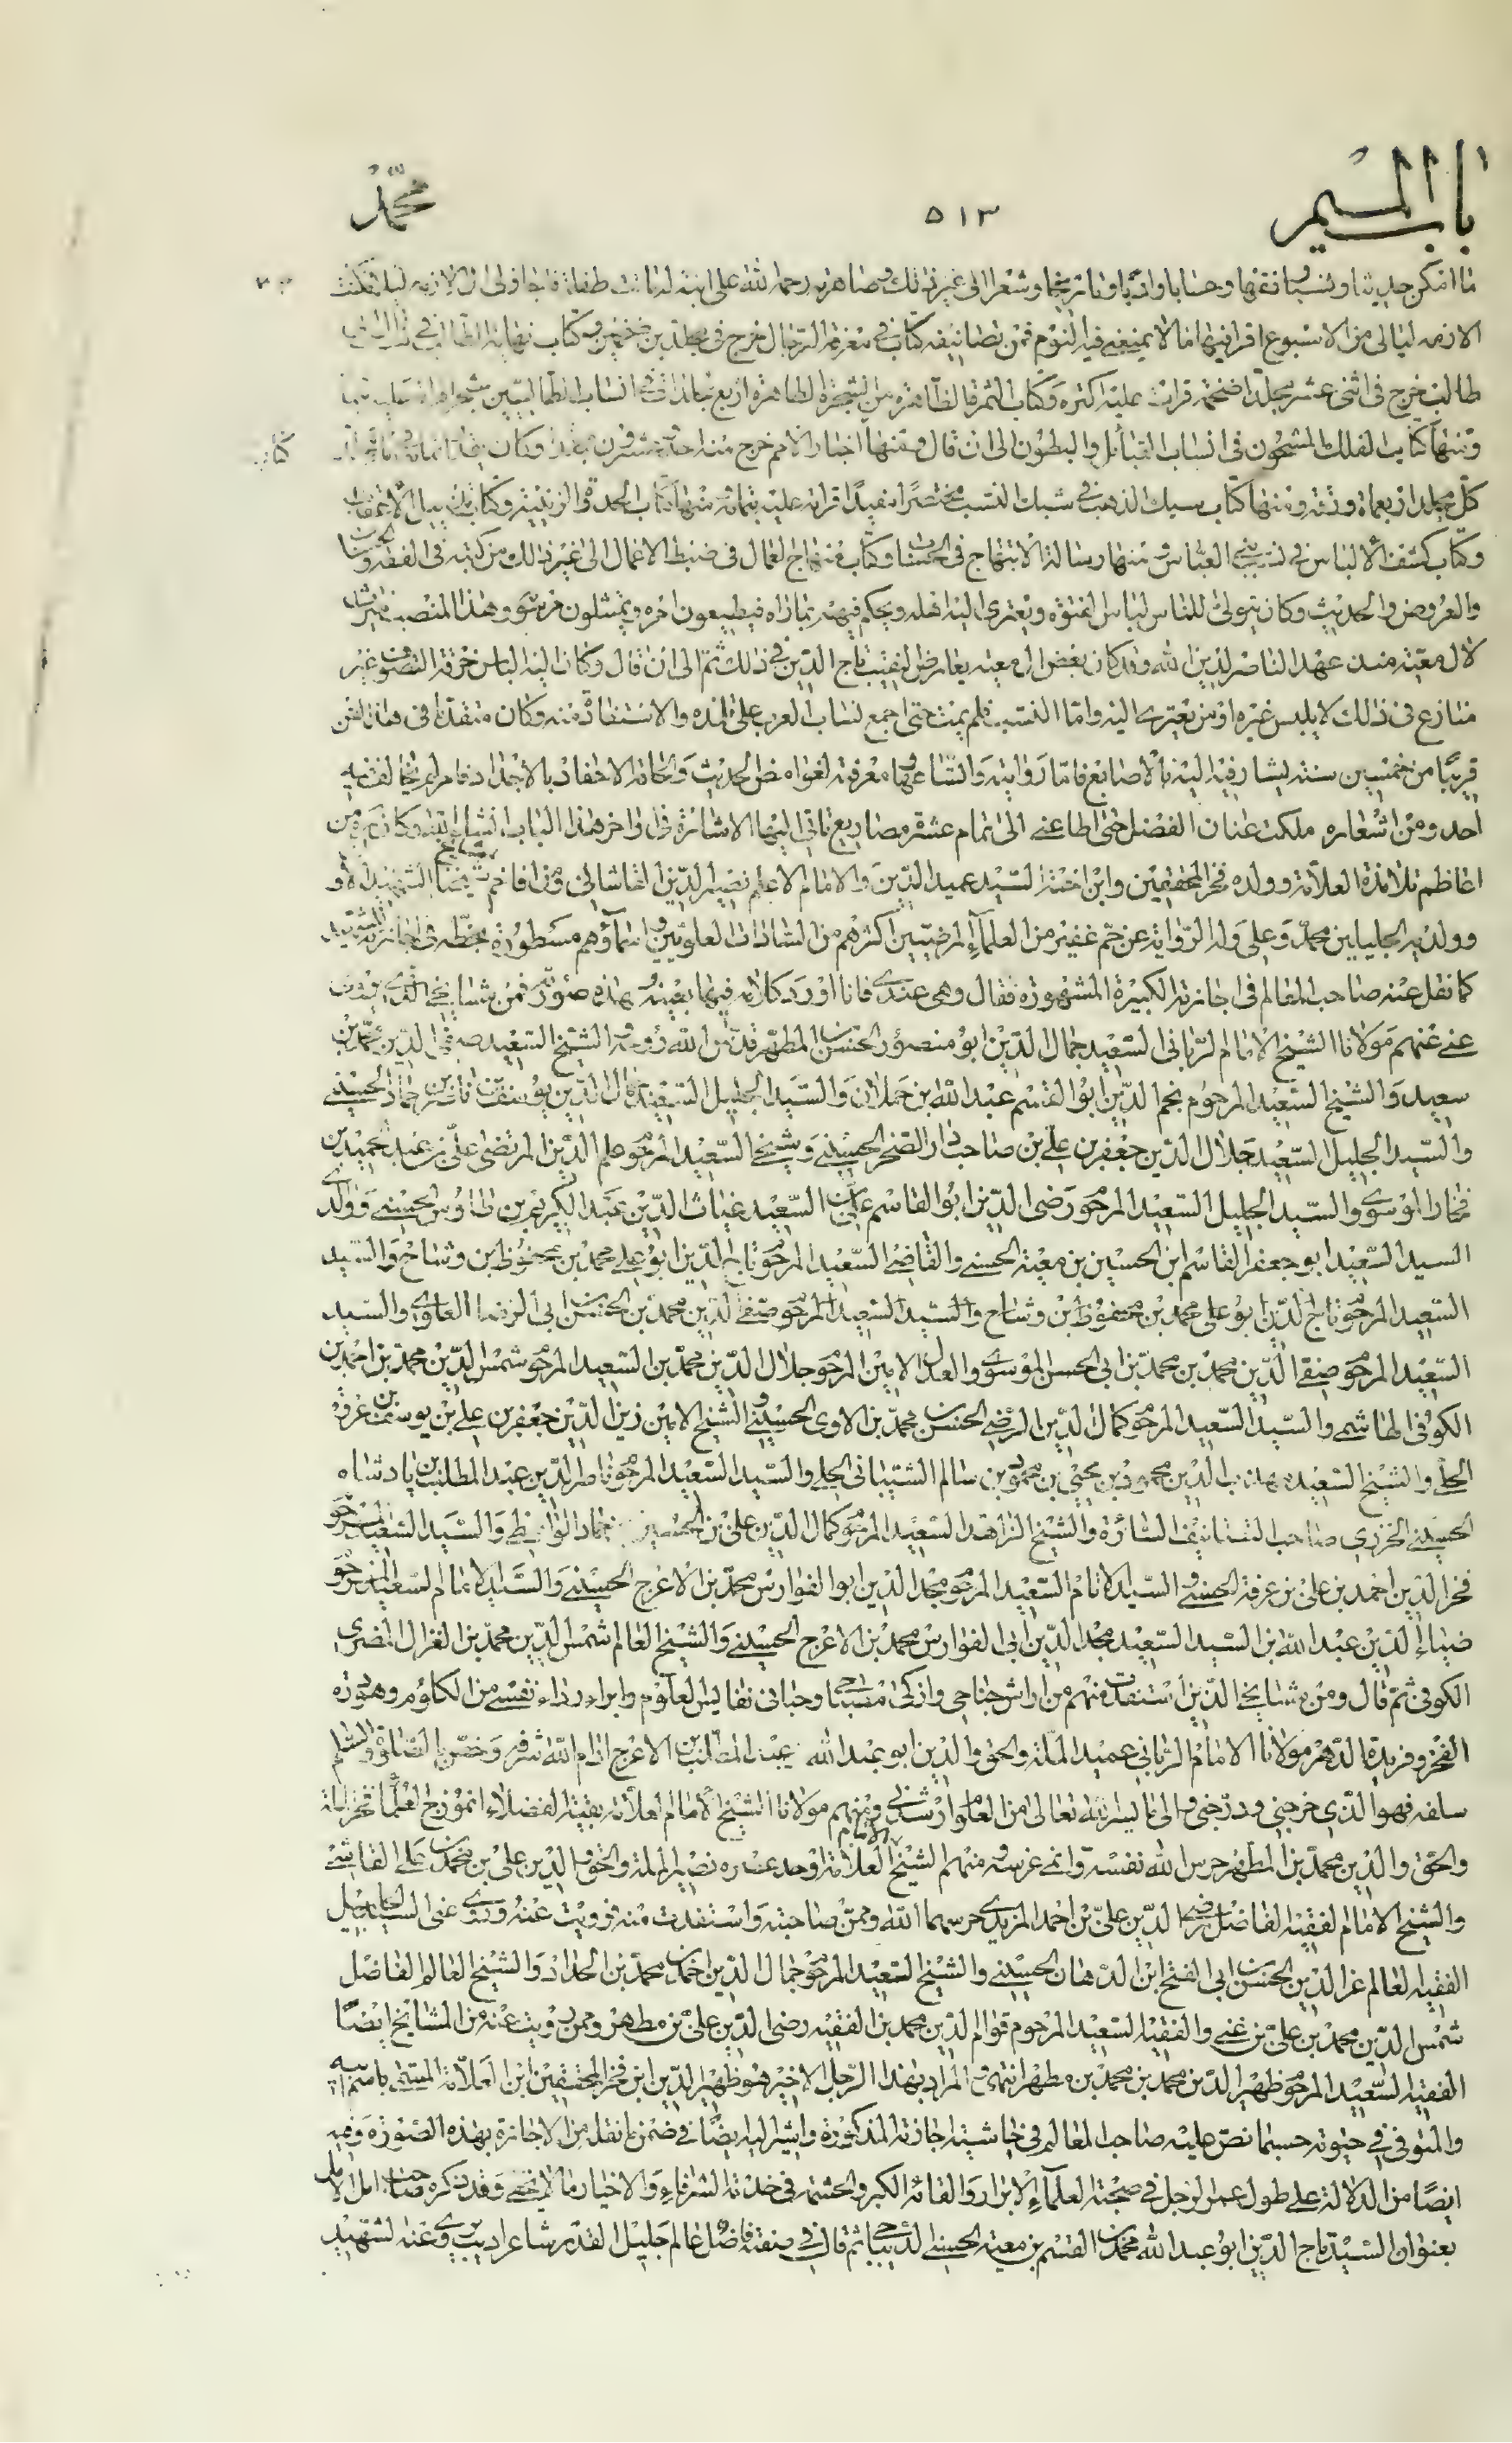 باب الميم
٥١٣
محمّد
ما امكن حديثا ونسبا وفقها وحسابا وادبا وتاريخا وشعرا الى غير ذلك وصاهرته رحمه الله على ابنة له ماتت طفلة فاجاز لى ان الازمه ليلا فكنت
الازمه ليالى من الاسبوع اقرا فيها ما لا يمنعنى فيه النوم فمن تصانيفه كتاب فى معرفة الرجال خرج فى مجلدين ضخمين وكتاب نهاية الطالب فى نسب ال ابى
طالب خرج فى اثنى عشر مجلدا ضخمة قرات عليه اكثره وكتاب الثمرة الظاهرة من الشجرة الطاهرة اربع مجلدات فى انساب الطالبيين مشجرا قراته عليه بتمامه
ومنها كتاب الفلك المشحون فى انساب القبائل والبطون الى ان قال ومنها اخبار الامم خرج منه احد وعشرون مجلدا وكان يقدر اتمامه فى مائة مجلد
كتاب
كل مجلد اربعمائة ورقة ومنها كتاب سبك الذهب فى شبك النسب مختصرا مفيدا قراته عليه بتمامه ومنها كتاب الحدوة الزينية وكتاب تذييل الاعقاب
وكتاب كشف الالباس فى نسب بنى العباس ومنها رسالة الابتهاج فى الحساب وكتاب منهاج العمال فى ضبط الاعمال الى غير ذلك من كتبه فى الفقه والحساب
والعروض والحديث وكان يتولى الباس لباس الفتوة ويعتزى اليه اهله ويحكم فيهم بما راه فيطيعون امره ويمتثلون مرسومه وهذا المنصب ميراث
لال معية من عهد الناصر لدين الله وقد كان بعض ال معية يعارض النقيب تاج الدين فى ذلك ثم الى ان قال وكان اليه الباس خرقة التصوف غير
منازع فى ذلك لا يلبس غيره او من يعتزى اليه واما النسب فلم يمت حتى اجمع نساب العرب على تلمذه والاستفادة منه وكان متقدما فى هذا الفن
قريبا من خمسين سنة يشار فيه اليه بالاصابع فاما روايته واتساعها ومعرفته لغوامض الحديث والحاقه الاحفاد بالاجداد فامر لم يخالف فيه
احد ومن اشعاره ملكت عنان الفضل حتى اطاعنى الى تمام عشرة مصاريع تاتى اليها الاشارة فى اواخر هذا الباب انشاء الله وكان يروى عن
اعاظم تلامذة العلامة وولده فخر المحققين وابن اخته السيد عميد الدين والامام الاعلم نصير الدين القاشانى ومن افاخم مشايخ شيخنا الشهيد الاول
وولديه الجليلين محمد وعلى وله الرواية عن جم غفير من العلماء المرضيين اكثرهم من السادات العلويين واسماؤهم مسطورة بخطه فى اجازته للشهيد
كما نقل عنه صاحب المعالم فى اجازته الكبيرة المشهورة فقال وهى عندى فانا اورد كلامه فيها بعينه بهذه صورته فمن مشايخى الذين يروى
عنى عنهم مولانا الشيخ الامام الربانى السعيد جمال الدين ابو منصور الحسن بن المطهر قدس الله روحه والشيخ السعيد صفى الدين محمد بن
سعيد والشيخ السعيد المرحوم نجم الدين ابو القسم عبد الله بن حملان والسيد الجليل السعيد جمال الدين يوسف بن ناصر بن حماد الحسينى
والسيد الجليل السعيد جلال الدين جعفر بن على بن صاحب دار الصخر الحسينى وشيخى السعيد المرحوم علم الدين المرتضى على بن عبد الحميد بن
فخار الموسوى والسيد الجليل السعيد المرحوم رضى الدين ابو القاسم على بن السعيد غياث الدين عبد الكريم بن طاوس الحسينى ووالدى
السيد السعيد ابو جعفر القاسم بن الحسين بن معية الحسنى والقاضى السعيد المرحوم تاج الدين ابو على محمد بن محفوظ بن وشاح والسيد
السعيد المرحوم تاج الدين ابو على محمد بن محفوظ بن وشاح والسيد السعيد المرحوم صفى الدين محمد بن الحسن بن ابى الرضا العلوى والسيد
السعيد المرحوم صفى الدين محمد بن محمد بن ابى الحسن الموسوى والعدل الامين المرحوم جلال الدين محمد بن السعيد المرحوم شمس الدين محمد بن احمد بن
الكوفى الهاشمى والسيد السعيد المرحوم كمال الدين الرضى الحسن بن محمد بن الاوى الحسينى والشيخ الامين زين الدين جعفر بن على بن يوسف بن عروة
الحلى والشيخ السعيد مهذب الدين محمود بن يحيى بن محمود بن سالم الشيبانى الحلى والسيد السعيد المرحوم ناصر الدين عبد المطلب بن پادشاه
الحسينى الخزرى صاحب التصانيف السائرة والشيخ الزاهد السعيد المرحوم كمال الدين على بن الحسين بن حماد الواسطى والسيد السعيد المرحوم
فخر الدين احمد بن على بن عرفة الحسنى والسيد الامام السعيد المرحوم مجد الدين ابو الفوارس محمد بن الاعرج الحسينى والسيد الامام السعيد المرحوم
ضياء الدين عبد الله بن السيد السعيد مجد الدين ابى الفوارس محمد بن الاعرج الحسينى والشيخ العالم شمس الدين محمد بن الغزال المضرى
الكوفى ثم قال ومن مشايخى الذين استفدت منهم من اراش جناحى واذكى مصباحى وحبانى نفايس العلوم وابراء داء نفسى من الكلوم وهو درة
الفخر وفريدة الدهر مولانا الامام الربانى عميد الملة والحق والدين ابو عبد الله عبد المطلب بن الاعرج ادام الله شرفه وخص بالصلوة والسلام
سلفه فهو الذى خرجنى ودرجنى والى ما يسر الله تعالى من العلوم ارشدنى ومنهم مولانا الشيخ الامام العلامة بقية الفضلاء انموذج العلماء فخر الملة
والحق والدين محمد بن المطهر حرس الله نفسه وانمى غرسه ومنهم الشيخ الامام العلامة اوحد عصره نصير الملة والحق والدين على بن محمد بن على القاشى
والشيخ الامام الفقيه الفاضل رضى الدين على بن احمد المزيدى حرسهما الله وممن صاحبته واستفدت منه ورويت عنه وروى عنى السيد الجليل
الفقيه العالم عز الدين الحسن بن ابى الفتح ابن الدهان الحسينى والشيخ السعيد المرحوم جمال الدين احمد بن محمد بن الحداد والشيخ العالم الفاضل
شمس الدين محمد بن على بن غنى والفقيه السعيد المرحوم قوام الدين محمد بن الفقيه رضى الدين على بن مطهر وممن رويت عنه من المشايخ ايضا
الفقيه السعيد المرحوم ظهير الدين محمد بن محمد بن مطهر انتهى والمراد بهذا الرجل الاخير هو ظهير الدين ابن فخر المحققين ابن العلامة المسمى باسم ابيه
والمتوفى فى حيوته حسبما نص عليه صاحب المعالم فى حاشية اجازته المذكورة واشير اليه ايضا فى ضمن ما نقل من الاجازة بهذه الصورة وفيه
ايضا من الدلالة على طول عمر الرجل فى صحبة العلماء الابرار والقائه الكبر والحشمة فى خدمة الشرفاء والاخيار ما لا يخفى وقد ذكره صاحب امل الامل
بعنوان السيد تاج الدين ابو عبد الله محمد بن القسم بن معية الحسنى الديباجى ثم قال فى صفته فاضل عالم جليل القدر شاعر اديب يروى عنه الشهيد